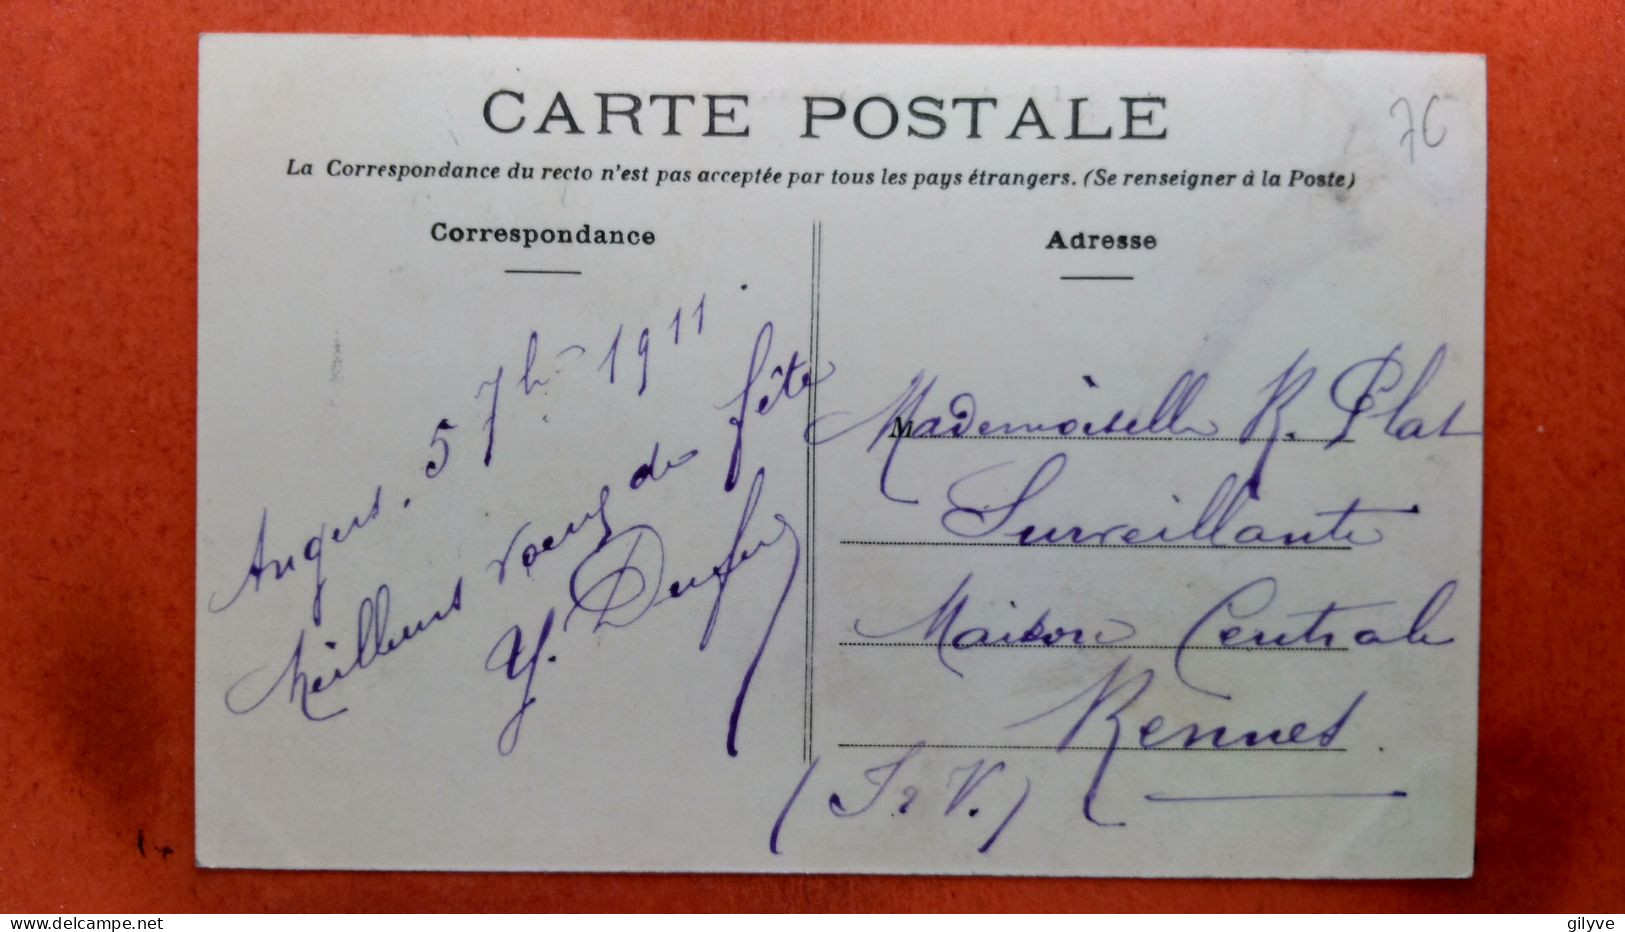 CARTE POSTALE
76
La Correspondance du recto n'est pas acceptée par tous les pays étrangers. (Se renseigner à la Poste)
Correspondance
Angers. 5 7b 1911.
Meilleurs voeux de fête
Y. Dufu
Adresse
Mademoiselle R. Plat
Surveillante
Maison Centrale
Rennes.
(I & V.)
gilyve
delcampe.net